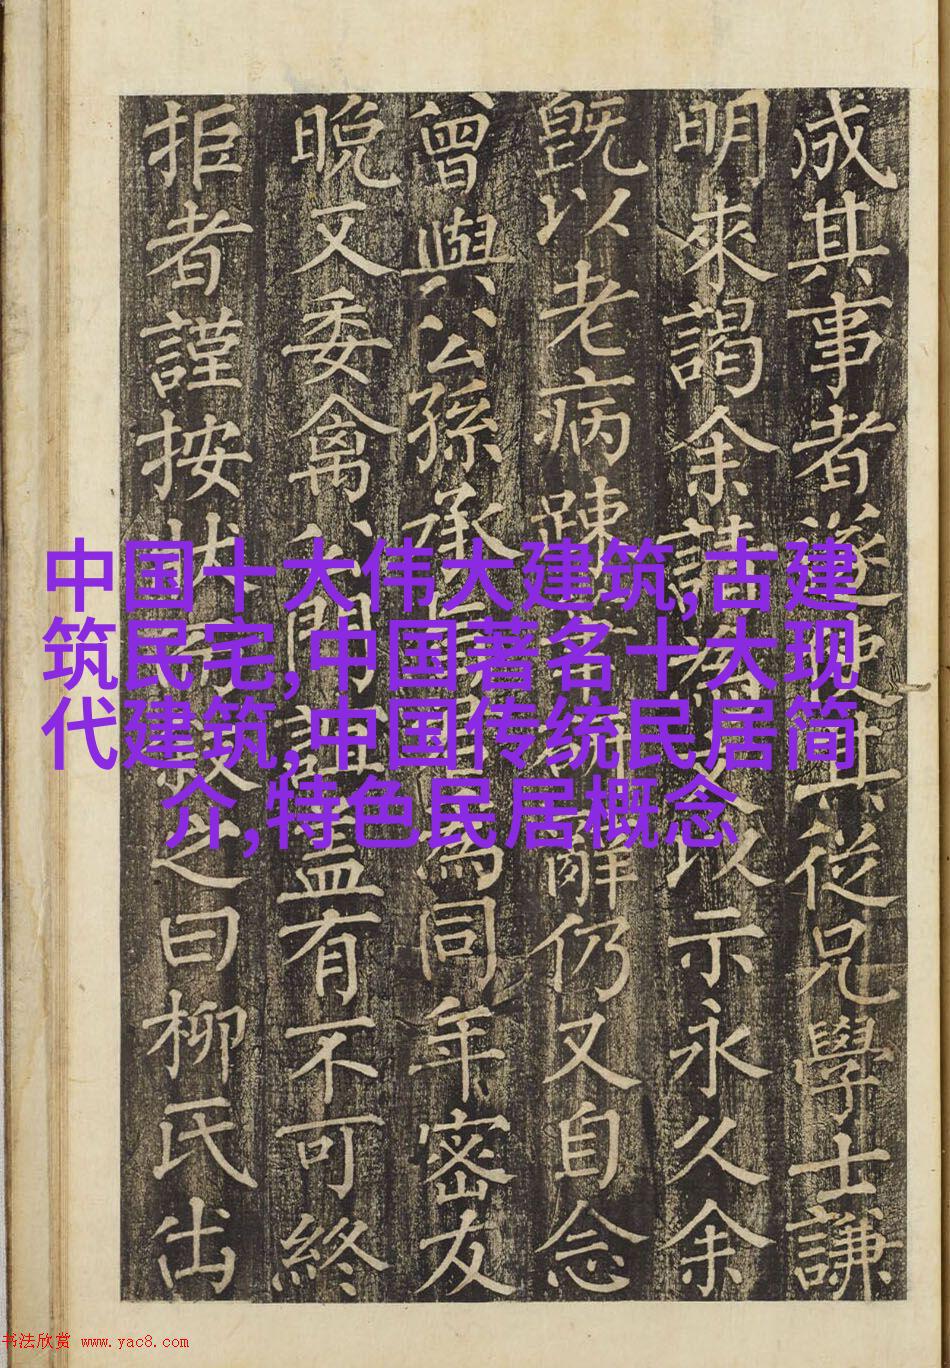 成其事者遂使其從兄學士謙
明來謁余請為以示永久余
既以老病踈辭仍又自念
曾與公孫承為同年密友
晚又委禽公門誼盖有不可終
拒者謹按狀之曰柳氏出
中国十大伟大建筑,古建
筑民宅,中国著名十大现
代建筑,中国传统民居简
介,特色民居概念
书法欣赏 www.yac8.com